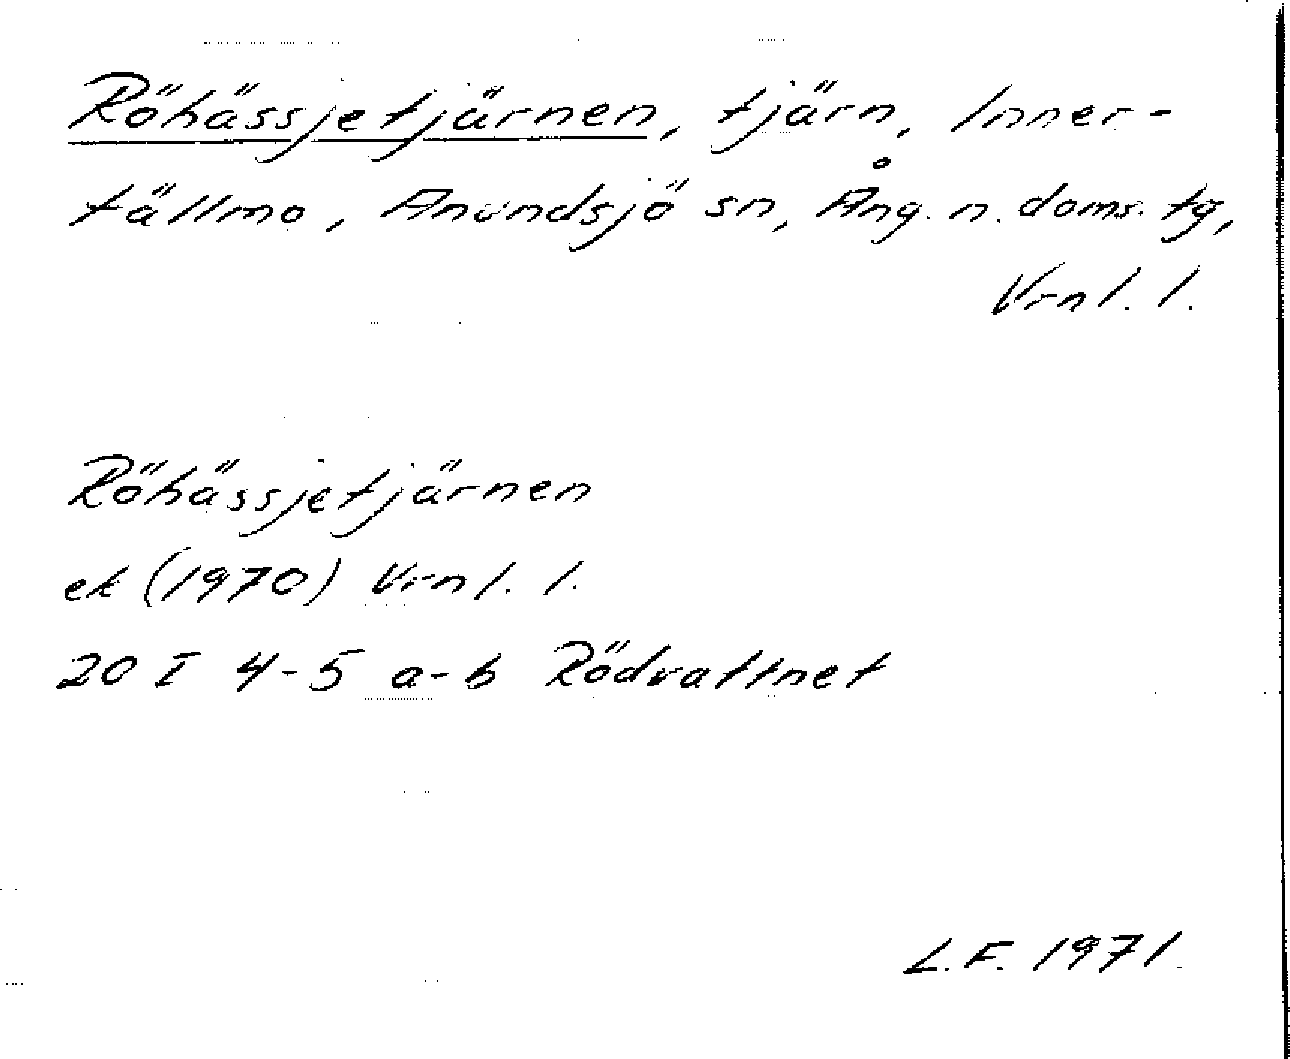 Röhässjetjärnen, tjärn, Inner-
tällmo, Anundsjö sn, Ång. n. doms. tg,
Vrnl. l.
Röhässjetjärnen
ek (1970) Vrnl. l.
20 I 4-5 a-b Rödvattnet
L.F. 1971.